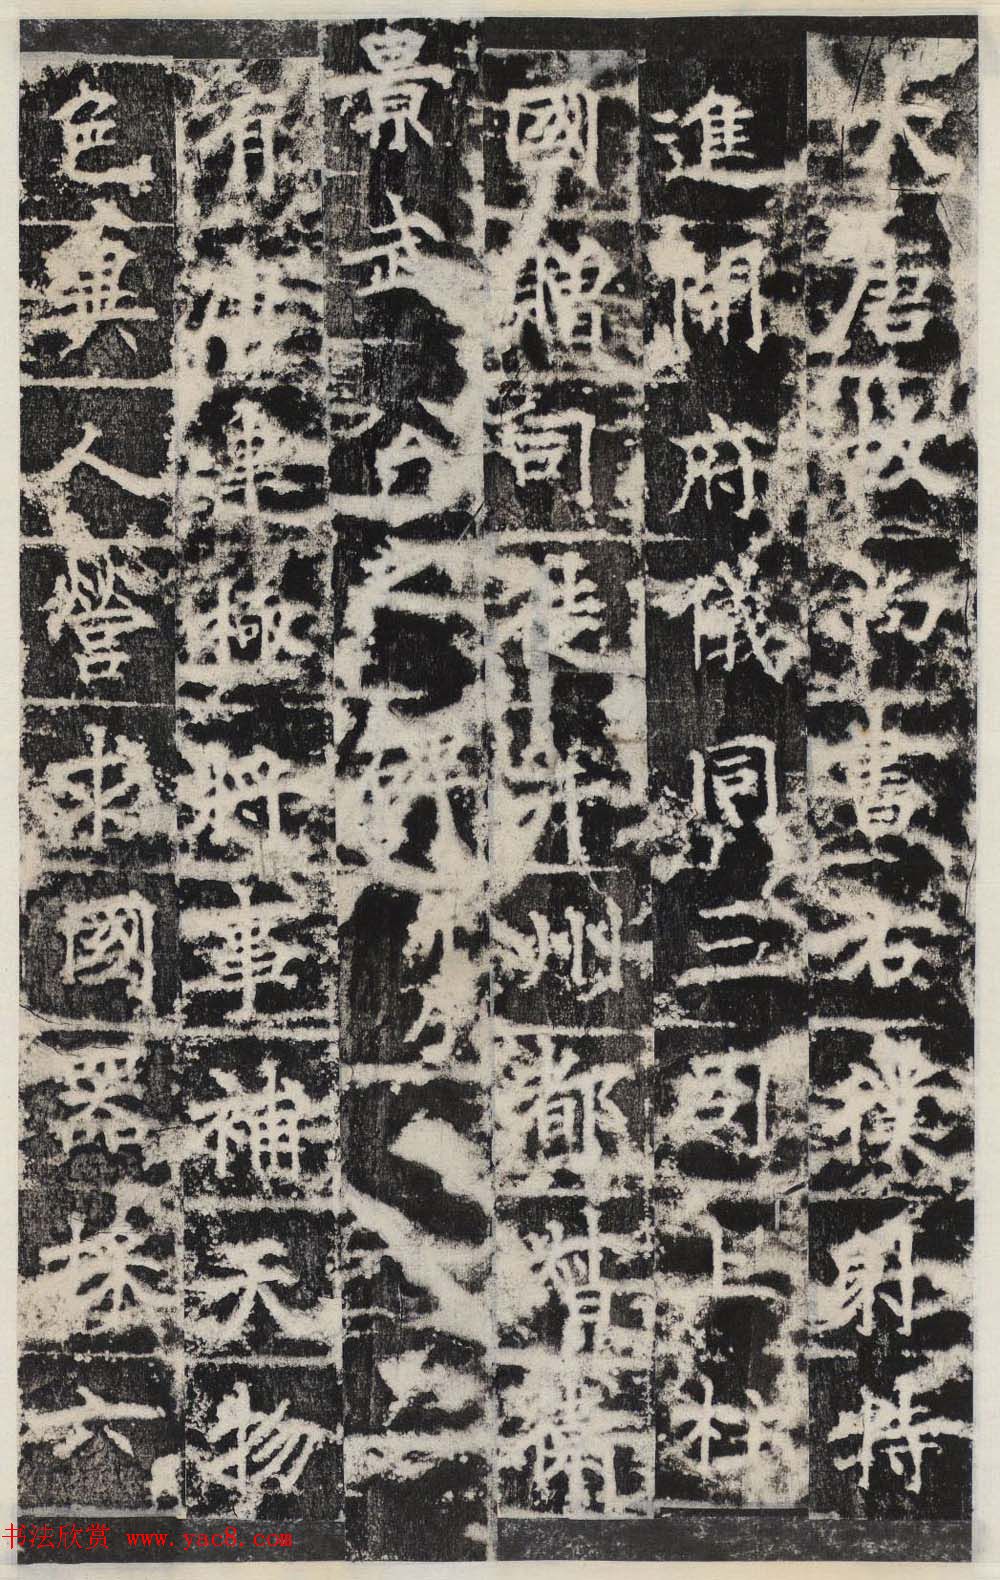 大唐故尚書右僕射特
進開府儀同三司上柱
國贈司徒并州都督衛
景武公
有海運極將軍補天物
色異人營求國器採六
书法欣赏 www.yac8.com